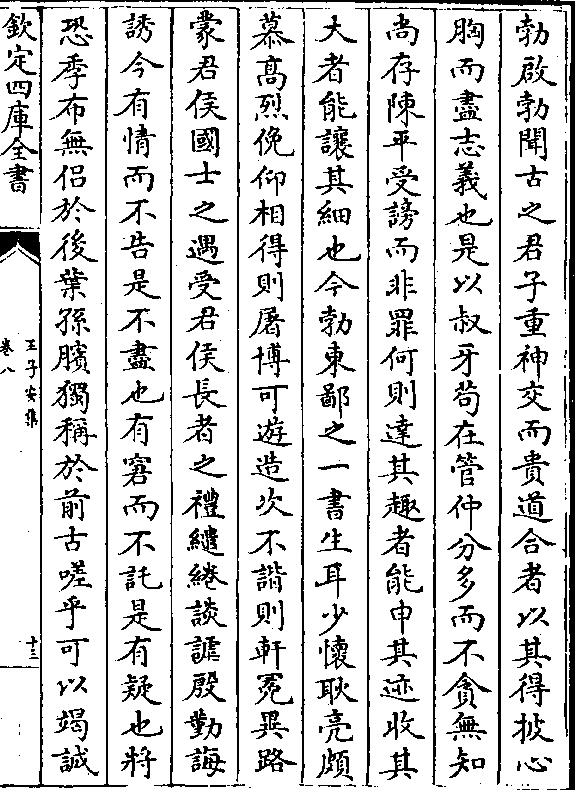 勃啟勃聞古之君子重神交而貴道合者以其得披心
胸而盡志義也是以叔牙苟在管仲分多而不貪無知
尚存陳平受謗而非罪何則達其趣者能申其迹收其
大者能讓其細也今勃東鄙之一書生耳少懷耿亮頗
慕髙烈俛仰相得則屠博可遊造次不諧則軒冕異路
蒙君侯國士之遇受君侯長者之禮繾綣談謔殷勤誨
誘今有情而不告是不盡也有窘而不託是有疑也將
恐季布無侣於後葉孫臏獨稱於前古嗟乎可以竭誠
欽定四庫全書
王子安集
卷八
十三